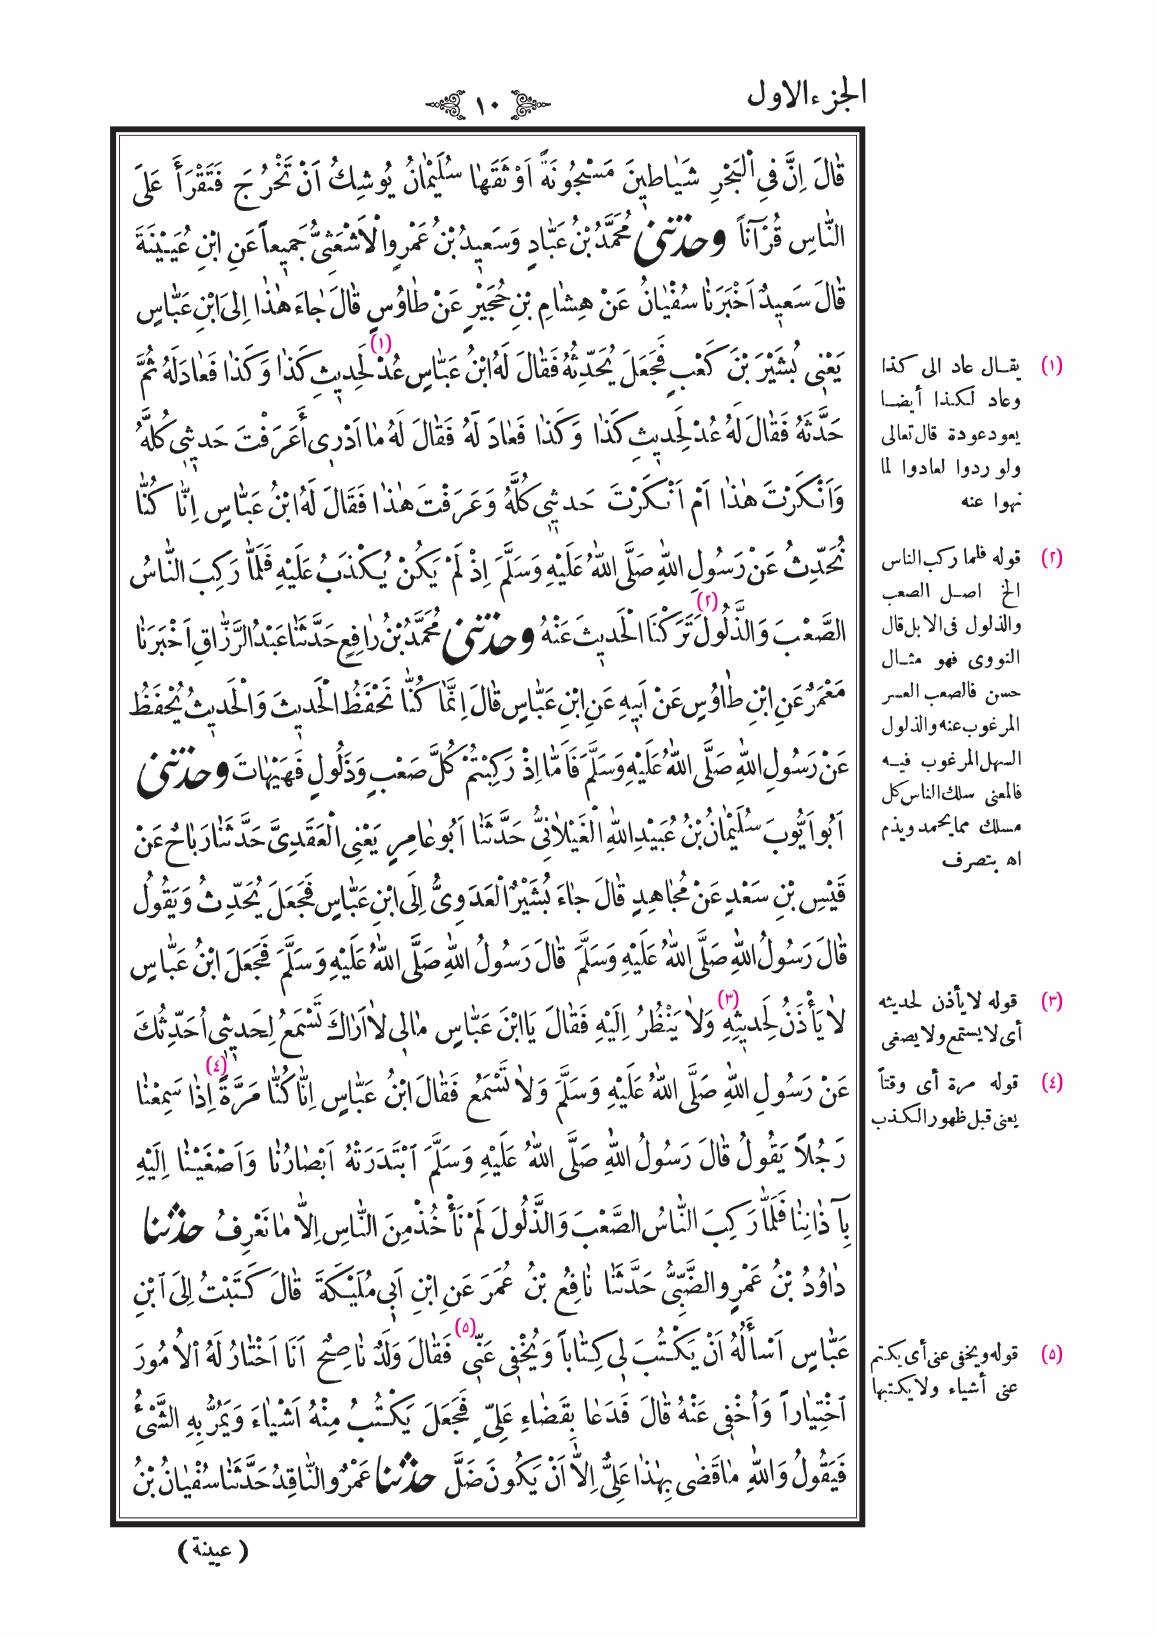 الجزء الاول
١٠
قَالَ اِنَّ فِى الْبَحْرِ شَيَاطِينَ مَسْجُونَةً اَوْثَقَهَا سُلَيْمَانُ يُوشِكُ اَنْ تَخْرُجَ فَتَقْرَأَ عَلَى
النَّاسِ قُرْآناً وحَدَّثَنِى مُحَمَّدُ بْنُ عَبَّادٍ وَسَعِيدُ بْنُ عَمْرٍو الْاَشْعَثِىُّ جَمِيعاً عَنِ ابْنِ عُيَيْنَةَ
قَالَ سَعِيدٌ اَخْبَرَنَا سُفْيَانُ عَنْ هِشَامِ بْنِ حُجَيْرٍ عَنْ طَاوُسٍ قَالَ جَاءَ هٰذَا اِلَى ابْنِ عَبَّاسٍ
يَعْنِى بُشَيْرَ بْنَ كَعْبٍ فَجَعَلَ يُحَدِّثُهُ فَقَالَ لَهُ ابْنُ عَبَّاسٍ عُدْ (١) لِحَدِيثِ كَذَا وَكَذَا فَعَادَ لَهُ ثُمَّ
حَدَّثَهُ فَقَالَ لَهُ عُدْ لِحَدِيثِ كَذَا وَكَذَا فَعَادَ لَهُ فَقَالَ لَهُ مَا اَدْرِى أَعَرَفْتَ حَدِيثِى كُلَّهُ
وَاَنْكَرْتَ هٰذَا اَمْ اَنْكَرْتَ حَدِيثِى كُلَّهُ وَعَرَفْتَ هٰذَا فَقَالَ لَهُ ابْنُ عَبَّاسٍ اِنَّا كُنَّا
نُحَدِّثُ عَنْ رَسُولِ اللّٰهِ صَلَّى اللّٰهُ عَلَيْهِ وَسَلَّمَ اِذْ لَمْ يَكُنْ يُكْذَبُ عَلَيْهِ فَلَمَّا رَكِبَ النَّاسُ
الصَّعْبَ وَالذَّلُولَ (٢) تَرَكْنَا الْحَدِيثَ عَنْهُ وحَدَّثَنِى مُحَمَّدُ بْنُ رَافِعٍ حَدَّثَنَا عَبْدُ الرَّزَّاقِ اَخْبَرَنَا
مَعْمَرٌ عَنِ ابْنِ طَاوُسٍ عَنْ اَبِيهِ عَنِ ابْنِ عَبَّاسٍ قَالَ اِنَّمَا كُنَّا نَحْفَظُ الْحَدِيثَ وَالْحَدِيثُ يُحْفَظُ
عَنْ رَسُولِ اللّٰهِ صَلَّى اللّٰهُ عَلَيْهِ وَسَلَّمَ فَاَمَّا اِذْ رَكِبْتُمْ كُلَّ صَعْبٍ وَذَلُولٍ فَهَيْهَاتَ وحَدَّثَنِى
اَبُو اَيُّوبَ سُلَيْمَانُ بْنُ عُبَيْدِ اللّٰهِ الْغَيْلَانِىُّ حَدَّثَنَا اَبُو عَامِرٍ يَعْنِى الْعَقَدِىَّ حَدَّثَنَا رَبَاحٌ عَنْ
قَيْسِ بْنِ سَعْدٍ عَنْ مُجَاهِدٍ قَالَ جَاءَ بُشَيْرٌ الْعَدَوِىُّ اِلَى ابْنِ عَبَّاسٍ فَجَعَلَ يُحَدِّثُ وَيَقُولُ
قَالَ رَسُولُ اللّٰهِ صَلَّى اللّٰهُ عَلَيْهِ وَسَلَّمَ قَالَ رَسُولُ اللّٰهِ صَلَّى اللّٰهُ عَلَيْهِ وَسَلَّمَ فَجَعَلَ ابْنُ عَبَّاسٍ
لَا يَأْذَنُ لِحَدِيثِهِ (٣) وَلَا يَنْظُرُ اِلَيْهِ فَقَالَ يَا ابْنَ عَبَّاسٍ مَالِى لَا اَرَاكَ تَسْمَعُ لِحَدِيثِى اُحَدِّثُكَ
عَنْ رَسُولِ اللّٰهِ صَلَّى اللّٰهُ عَلَيْهِ وَسَلَّمَ وَلَا تَسْمَعُ فَقَالَ ابْنُ عَبَّاسٍ اِنَّا كُنَّا مَرَّةً (٤) اِذَا سَمِعْنَا
رَجُلاً يَقُولُ قَالَ رَسُولُ اللّٰهِ صَلَّى اللّٰهُ عَلَيْهِ وَسَلَّمَ ابْتَدَرَتْهُ اَبْصَارُنَا وَاَصْغَيْنَا اِلَيْهِ
بِآذَانِنَا فَلَمَّا رَكِبَ النَّاسُ الصَّعْبَ وَالذَّلُولَ لَمْ نَأْخُذْ مِنَ النَّاسِ اِلَّا مَا نَعْرِفُ حَدَّثَنَا
دَاوُدُ بْنُ عَمْرٍو الضَّبِّىُّ حَدَّثَنَا نَافِعُ بْنُ عُمَرَ عَنِ ابْنِ اَبِى مُلَيْكَةَ قَالَ كَتَبْتُ اِلَى ابْنِ
عَبَّاسٍ اَسْأَلُهُ اَنْ يَكْتُبَ لِى كِتَاباً وَيُخْفِى عَنِّى (٥) فَقَالَ وَلَدٌ نَاصِحٌ اَنَا اَخْتَارُ لَهُ الْاُمُورَ
اخْتِيَاراً وَاُخْفِى عَنْهُ قَالَ فَدَعَا بِقَضَاءِ عَلِىٍّ فَجَعَلَ يَكْتُبُ مِنْهُ اَشْيَاءَ وَيَمُرُّ بِهِ الشَّىْءُ
فَيَقُولُ وَاللّٰهِ مَا قَضَى بِهٰذَا عَلِىٌّ اِلَّا اَنْ يَكُونَ ضَلَّ حَدَّثَنَا عَمْرٌو النَّاقِدُ حَدَّثَنَا سُفْيَانُ بْنُ
(عيينة)
(١) يقال عاد الى كذا
وعاد لكذا أيضا
يعود عودة قال تعالى
ولو ردوا لعادوا لما
نهوا عنه
(٢) قوله فلما ركب الناس
الخ اصل الصعب
والذلول فى الابل قال
النووى فهو مثال
حسن فالصعب العسر
المرغوب عنه والذلول
السهل المرغوب فيه
فالمعنى سلك الناس كل
مسلك مما يحمد ويذم
اه بتصرف
(٣) قوله لا يأذن لحديثه
أى لا يستمع ولا يصغى
(٤) قوله مرة أى وقتاً
يعنى قبل ظهور الكذب
(٥) قوله ويخفى عنى أى يكتم
عنى أشياء ولا يكتبها